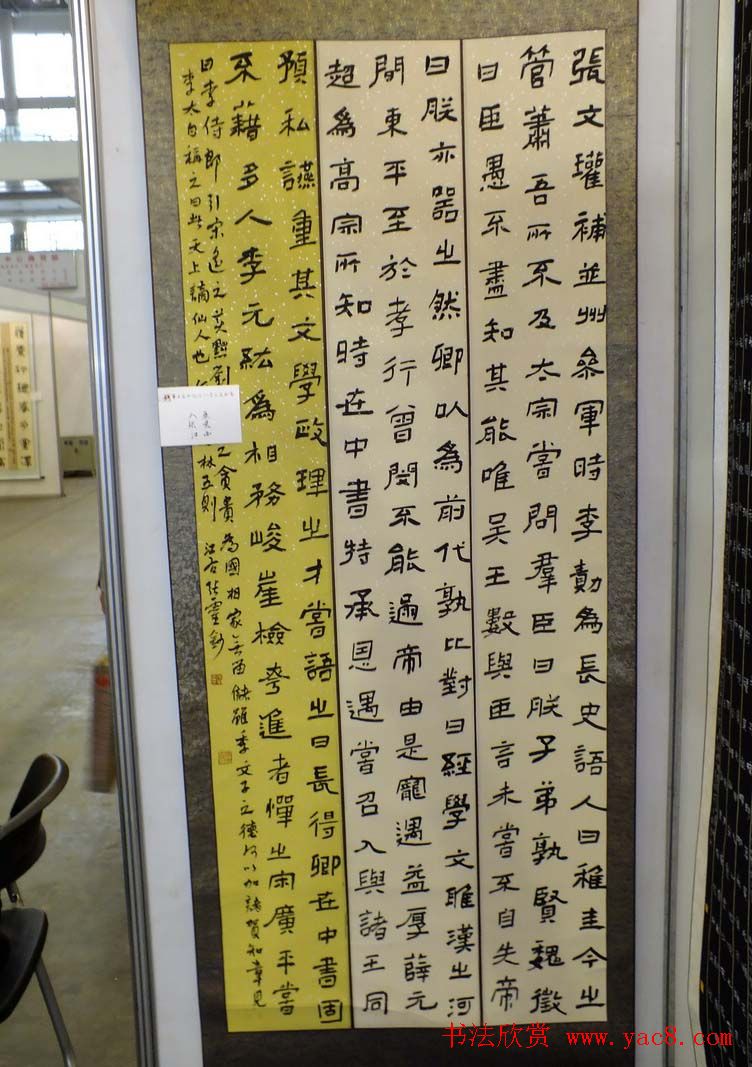 張文瓘補並州參軍時李勣為長史語人曰稚圭今之
管蕭吾所不及太宗嘗問羣臣曰朕子弟孰賢魏徵
曰臣愚不盡知其能唯吴王數與臣言未嘗不自失帝
曰朕亦器之然卿以為前代孰比對曰經學文雅漢之河
間東平至於孝行曾閔不能過帝由是寵遇益厚薛元
超為高宗所知時在中書特承恩遇嘗召入與諸王同
預私讌重其文學政理之才嘗語之曰長得卿在中書固
不藉多人李元紘為相務峻崖檢奔進者憚之宋廣平嘗
曰李侍郎引宋遙之美黜劉之貪貴為國相家無留儲雖季文子之德何以加諸賀知章見
李太白稱之曰此天上謫仙人也林五則 江右
书法欣赏 www.yac8.com